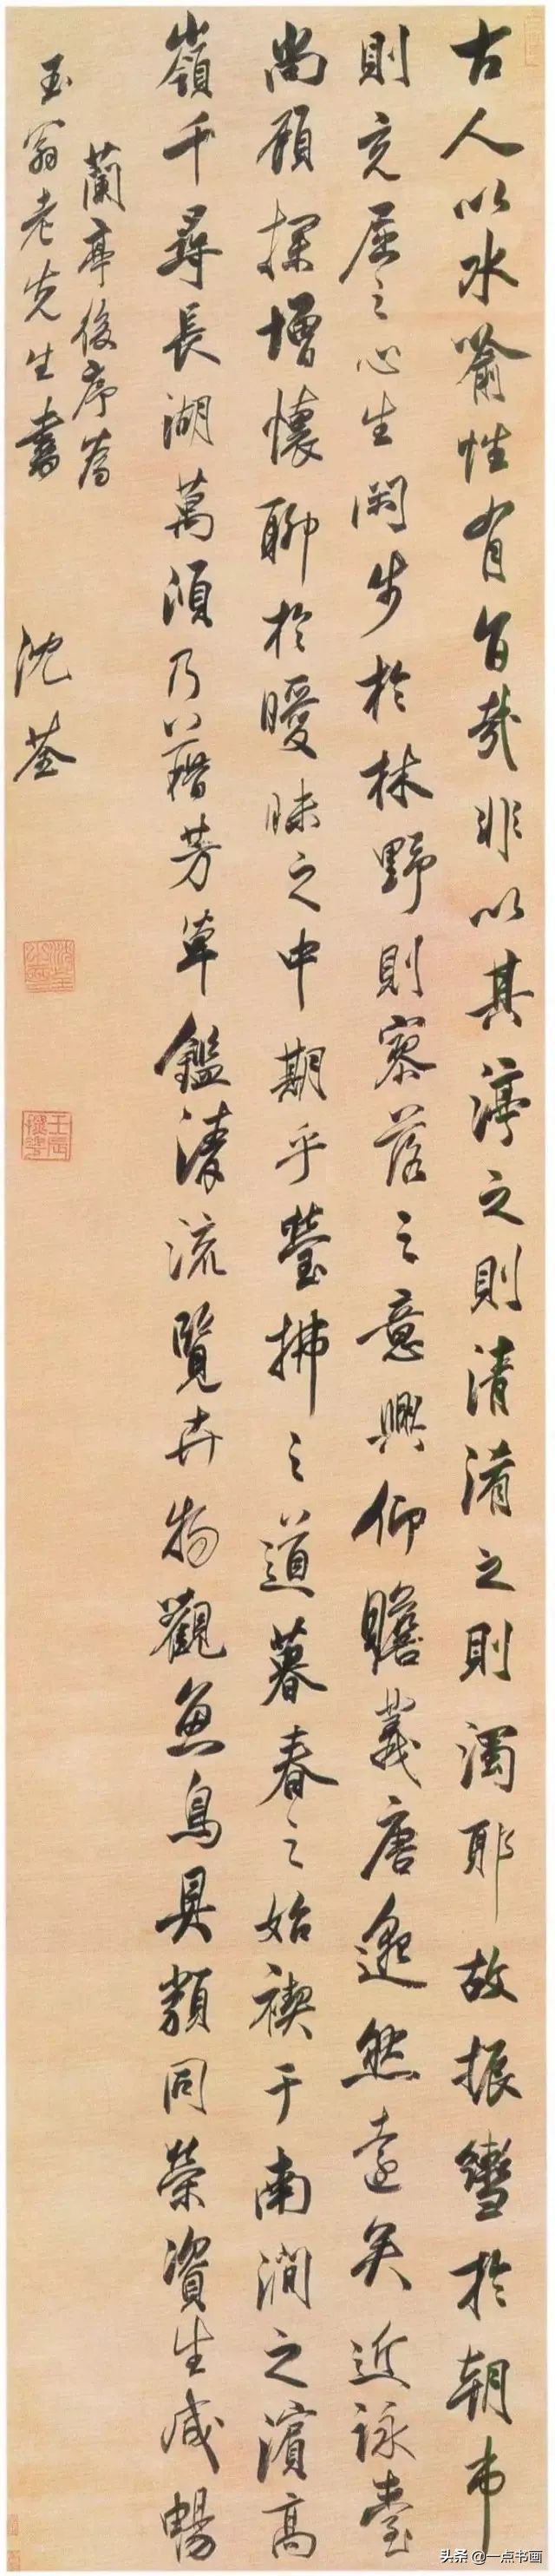 古人以水喻性有旨哉非以其渟之則清淆之則濁耶故振轡於朝市
則充屈之心生閑步於林野則寥落之意興仰瞻羲唐邈然遠矣近詠臺
閣顧探增懷聊於曖昧之中期乎瑩拂之道暮春之始禊于南澗之濱高
嶺千尋長湖萬頃乃藉芳草鑑清流覽卉物觀魚鳥具類同榮資生咸暢
蘭亭後序為
玉翁老先生書
沈荃
壬辰探花
头条 @一点书画